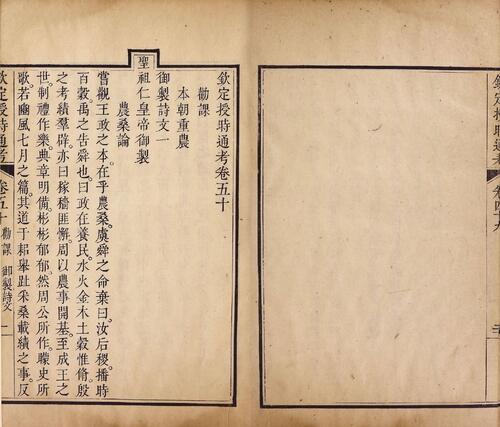 欽定授時通考
欽定授時通考卷五十
勸課
本朝重農
御製詩文一
聖祖仁皇帝御製
農桑論
嘗觀王政之本。在乎農桑。虞舜之命棄曰。汝后稷。播時
百穀。禹之告舜也。曰政在養民。水火金木土穀惟脩。殷
之考績羣辟。亦曰稼穡匪懈。周以農事開基。至成王之
世。制禮作樂。典章明備。彬彬郁郁然。周公所作。矇史所
歌。若豳風七月之篇。其道于耜舉趾采桑載績之事。反
欽定授時通考 卷五十 勸課 御製詩文一 一